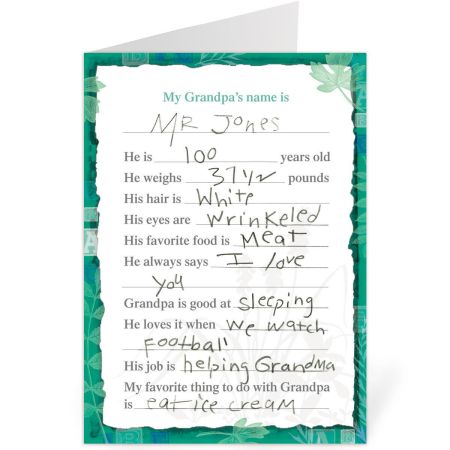 My Grandpa's name is
MR Jones
He is 100 years old
He weighs 37 1/2 pounds
His hair is White
His eyes are Wrinkeled
His favorite food is Meat
He always says I love
you
Grandpa is good at sleeping
He loves it when we watch
Football
His job is helping Grandma
My favorite thing to do with Grandpa
is eat ice cream